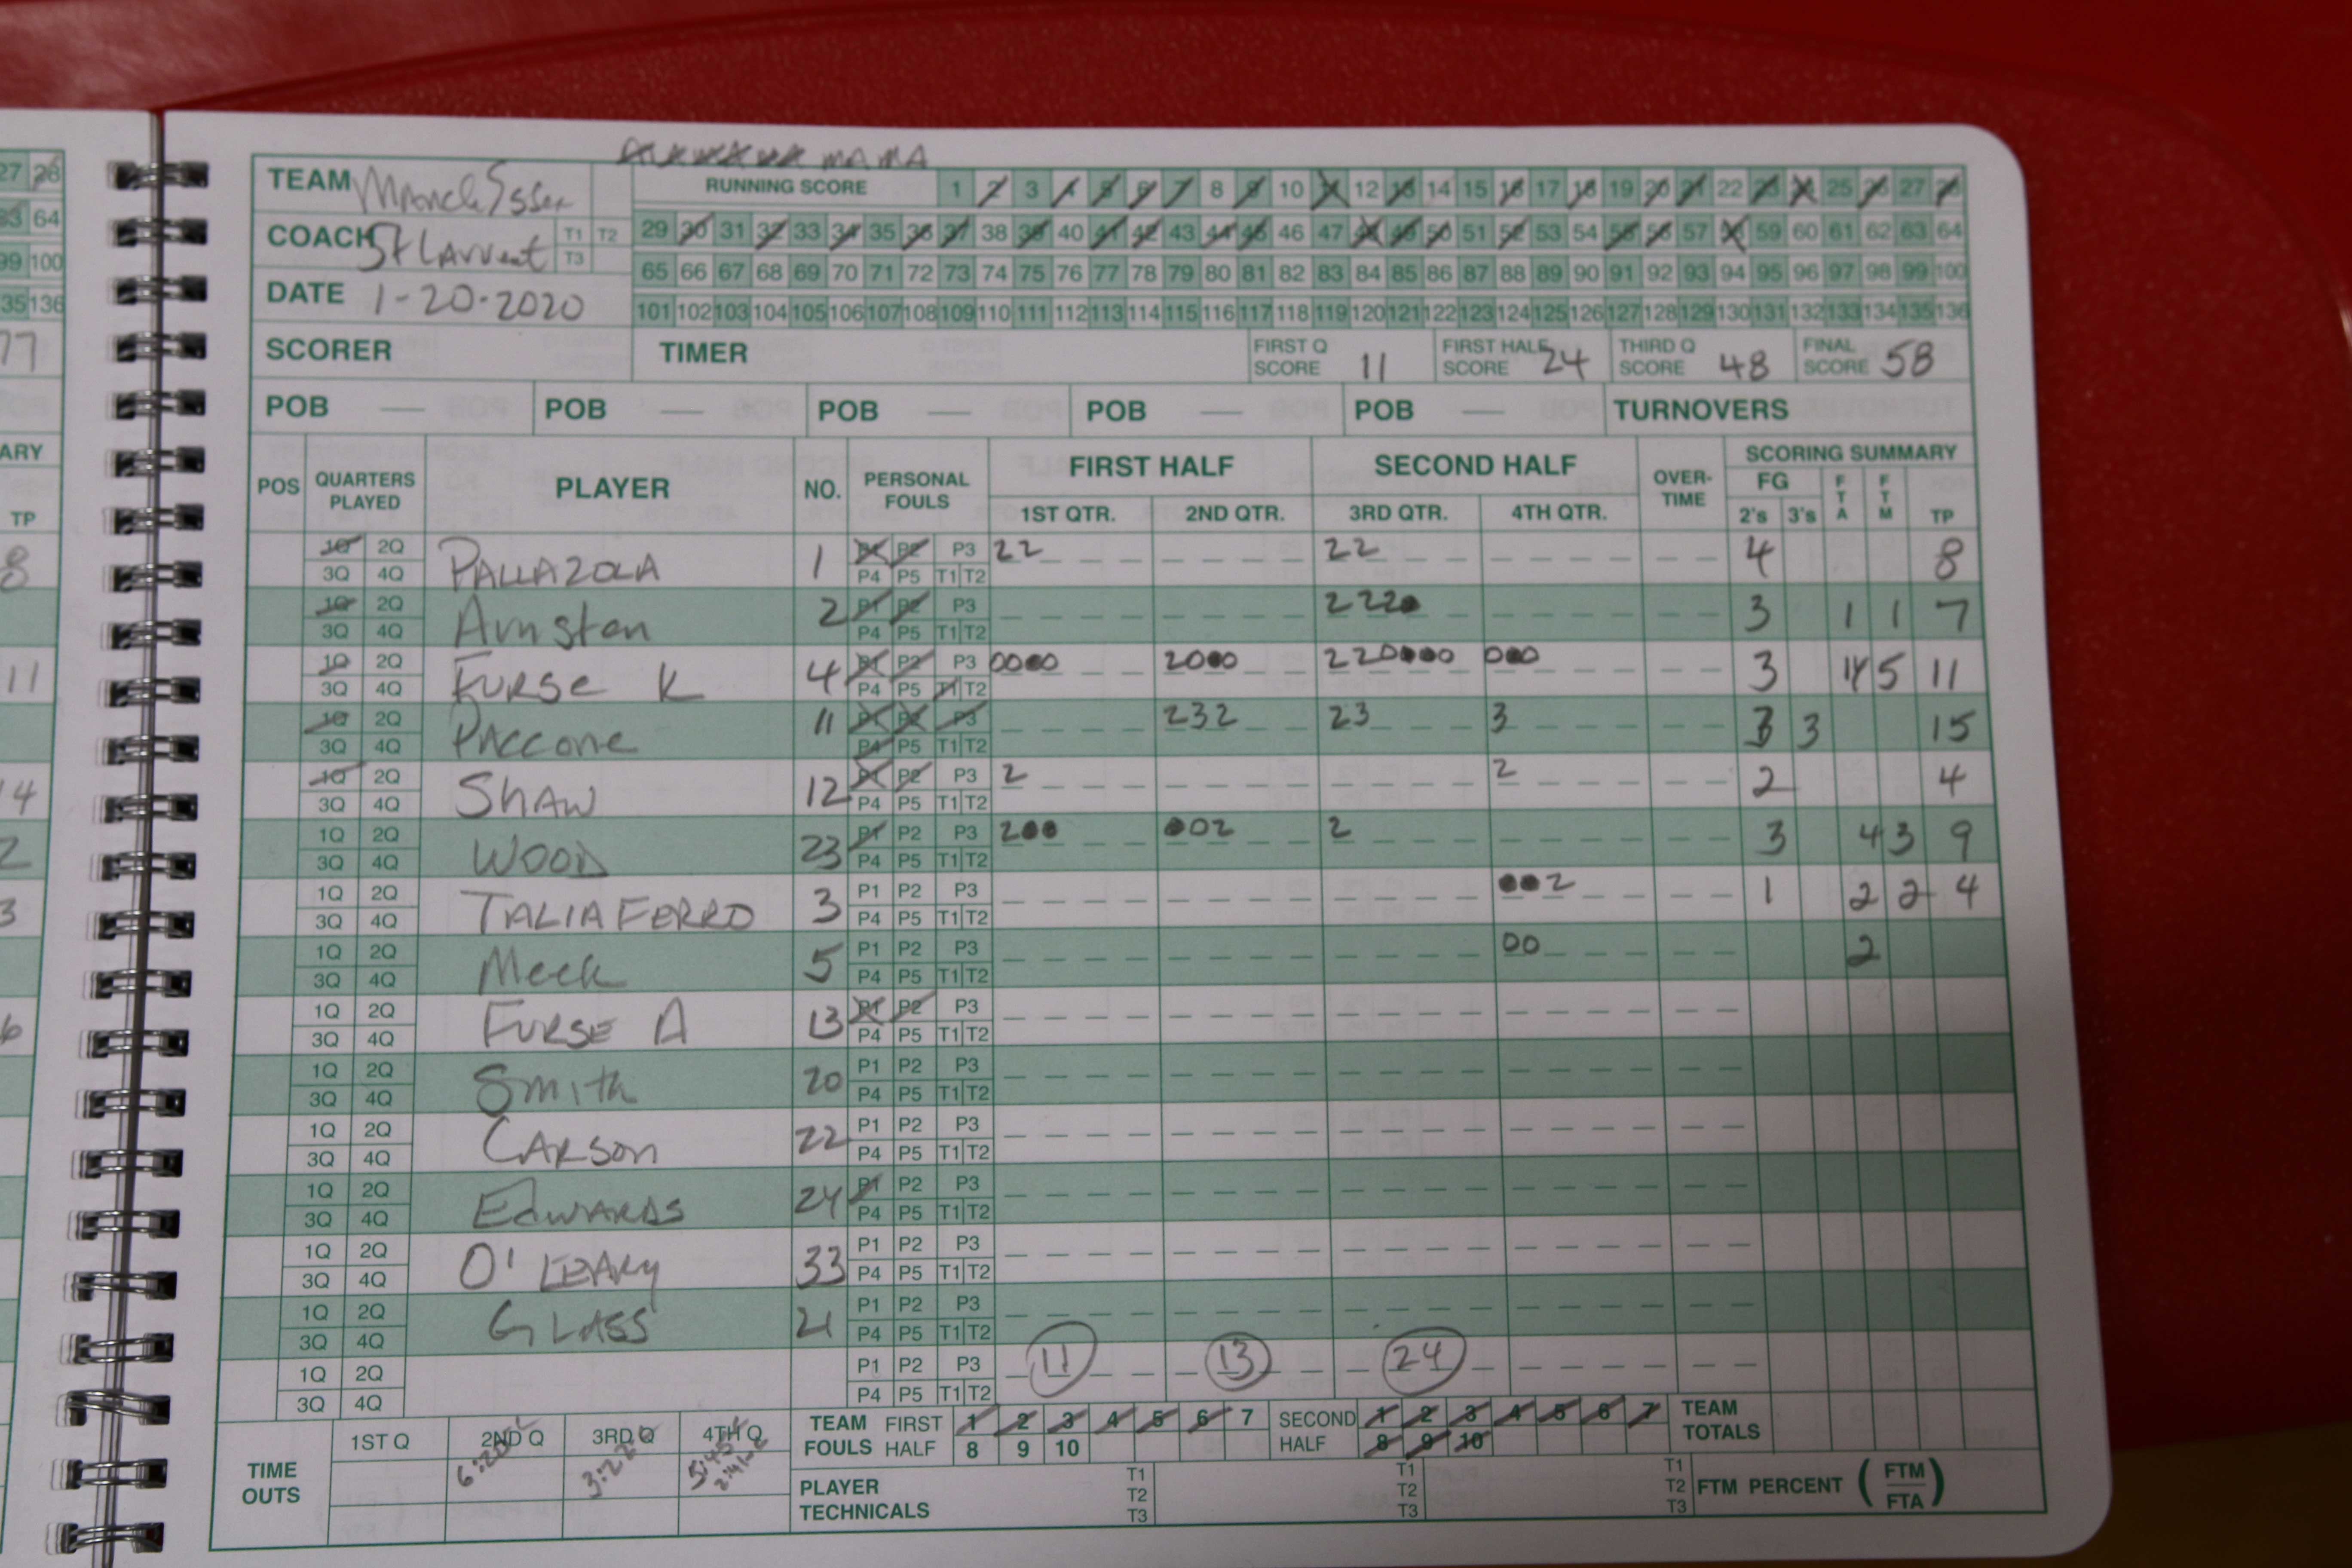 MAMA
TEAM Manch/Essex RUNNING SCORE 1 2 3 4 5 6 7 8 9 10 11 12 13 14 15 16 17 18 19 20 21 22 23 24 25 26 27 28
COACH St Laurent T1 T2 T3 29 30 31 32 33 34 35 36 37 38 39 40 41 42 43 44 45 46 47 48 49 50 51 52 53 54 55 56 57 58 59 60 61 62 63 64
65 66 67 68 69 70 71 72 73 74 75 76 77 78 79 80 81 82 83 84 85 86 87 88 89 90 91 92 93 94 95 96 97 98 99 100
DATE 1-20-2020 101 102 103 104 105 106 107 108 109 110 111 112 113 114 115 116 117 118 119 120 121 122 123 124 125 126 127 128 129 130 131 132 133 134 135 136
SCORER TIMER FIRST Q SCORE 11 FIRST HALF SCORE 24 THIRD Q SCORE 48 FINAL SCORE 58
POB — POB — POB — POB — POB — TURNOVERS
POS QUARTERS PLAYED PLAYER NO. PERSONAL FOULS FIRST HALF SECOND HALF OVER-TIME SCORING SUMMARY
1ST QTR. 2ND QTR. 3RD QTR. 4TH QTR. FG 2's 3's FTA FTM TP
1Q 2Q PALLAZOLA 1 P1 P2 P3 22 22 4 8
3Q 4Q P4 P5 T1 T2
1Q 2Q Arnsten 2 P1 P2 P3 222● 3 1 1 7
3Q 4Q P4 P5 T1 T2
1Q 2Q FURSE K 4 P1 P2 P3 00●0 20●0 220●●●0 0●0 3 14 5 11
3Q 4Q P4 P5 T1 T2
1Q 2Q PACCONE 11 P1 P2 P3 232 23 3 3 3 15
3Q 4Q P4 P5 T1 T2
1Q 2Q SHAW 12 P1 P2 P3 2 2 2 4
3Q 4Q P4 P5 T1 T2
1Q 2Q WOOD 23 P1 P2 P3 2●● ●02 2 3 4 3 9
3Q 4Q P4 P5 T1 T2
1Q 2Q TALIAFERRO 3 P1 P2 P3 ●●2 1 2 2 4
3Q 4Q P4 P5 T1 T2
1Q 2Q Meek 5 P1 P2 P3 00 2
3Q 4Q P4 P5 T1 T2
1Q 2Q FURSE A 13 P1 P2 P3
3Q 4Q P4 P5 T1 T2
1Q 2Q Smith 20 P1 P2 P3
3Q 4Q P4 P5 T1 T2
1Q 2Q CARSON 22 P1 P2 P3
3Q 4Q P4 P5 T1 T2
1Q 2Q EDWARDS 24 P1 P2 P3
3Q 4Q P4 P5 T1 T2
1Q 2Q O'LEARY 33 P1 P2 P3
3Q 4Q P4 P5 T1 T2
1Q 2Q GLASS 21 P1 P2 P3
3Q 4Q P4 P5 T1 T2
1Q 2Q P1 P2 P3 11 13 24
3Q 4Q P4 P5 T1 T2
TIME OUTS 1ST Q 2ND Q 3RD Q 4TH Q
TEAM FOULS FIRST HALF 1 2 3 4 5 6 7 8 9 10 SECOND HALF 1 2 3 4 5 6 7 8 9 10 TEAM TOTALS
PLAYER TECHNICALS T1 T2 T3 T1 T2 T3 T1 T2 T3 FTM PERCENT (FTM/FTA)
27 28
63 64
99 100
135 136
77
ARY
TP
8
11
14
2
3
6